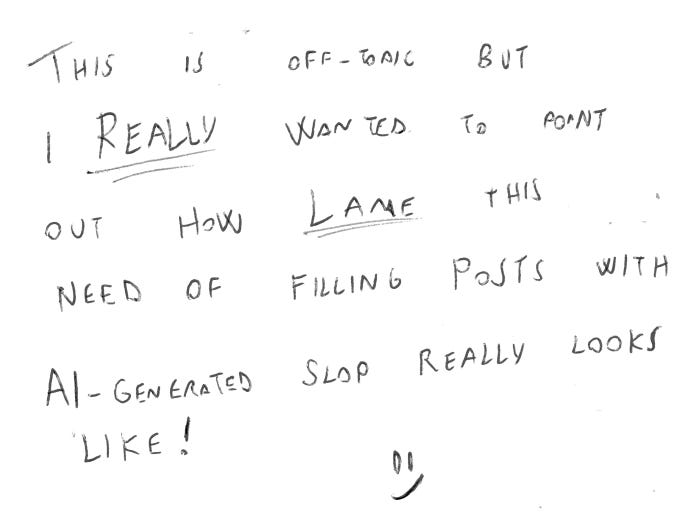 THIS IS OFF-TOPIC BUT
I REALLY WANTED TO POINT
OUT HOW LAME THIS
NEED OF FILLING POSTS WITH
AI-GENERATED SLOP REALLY LOOKS
LIKE!